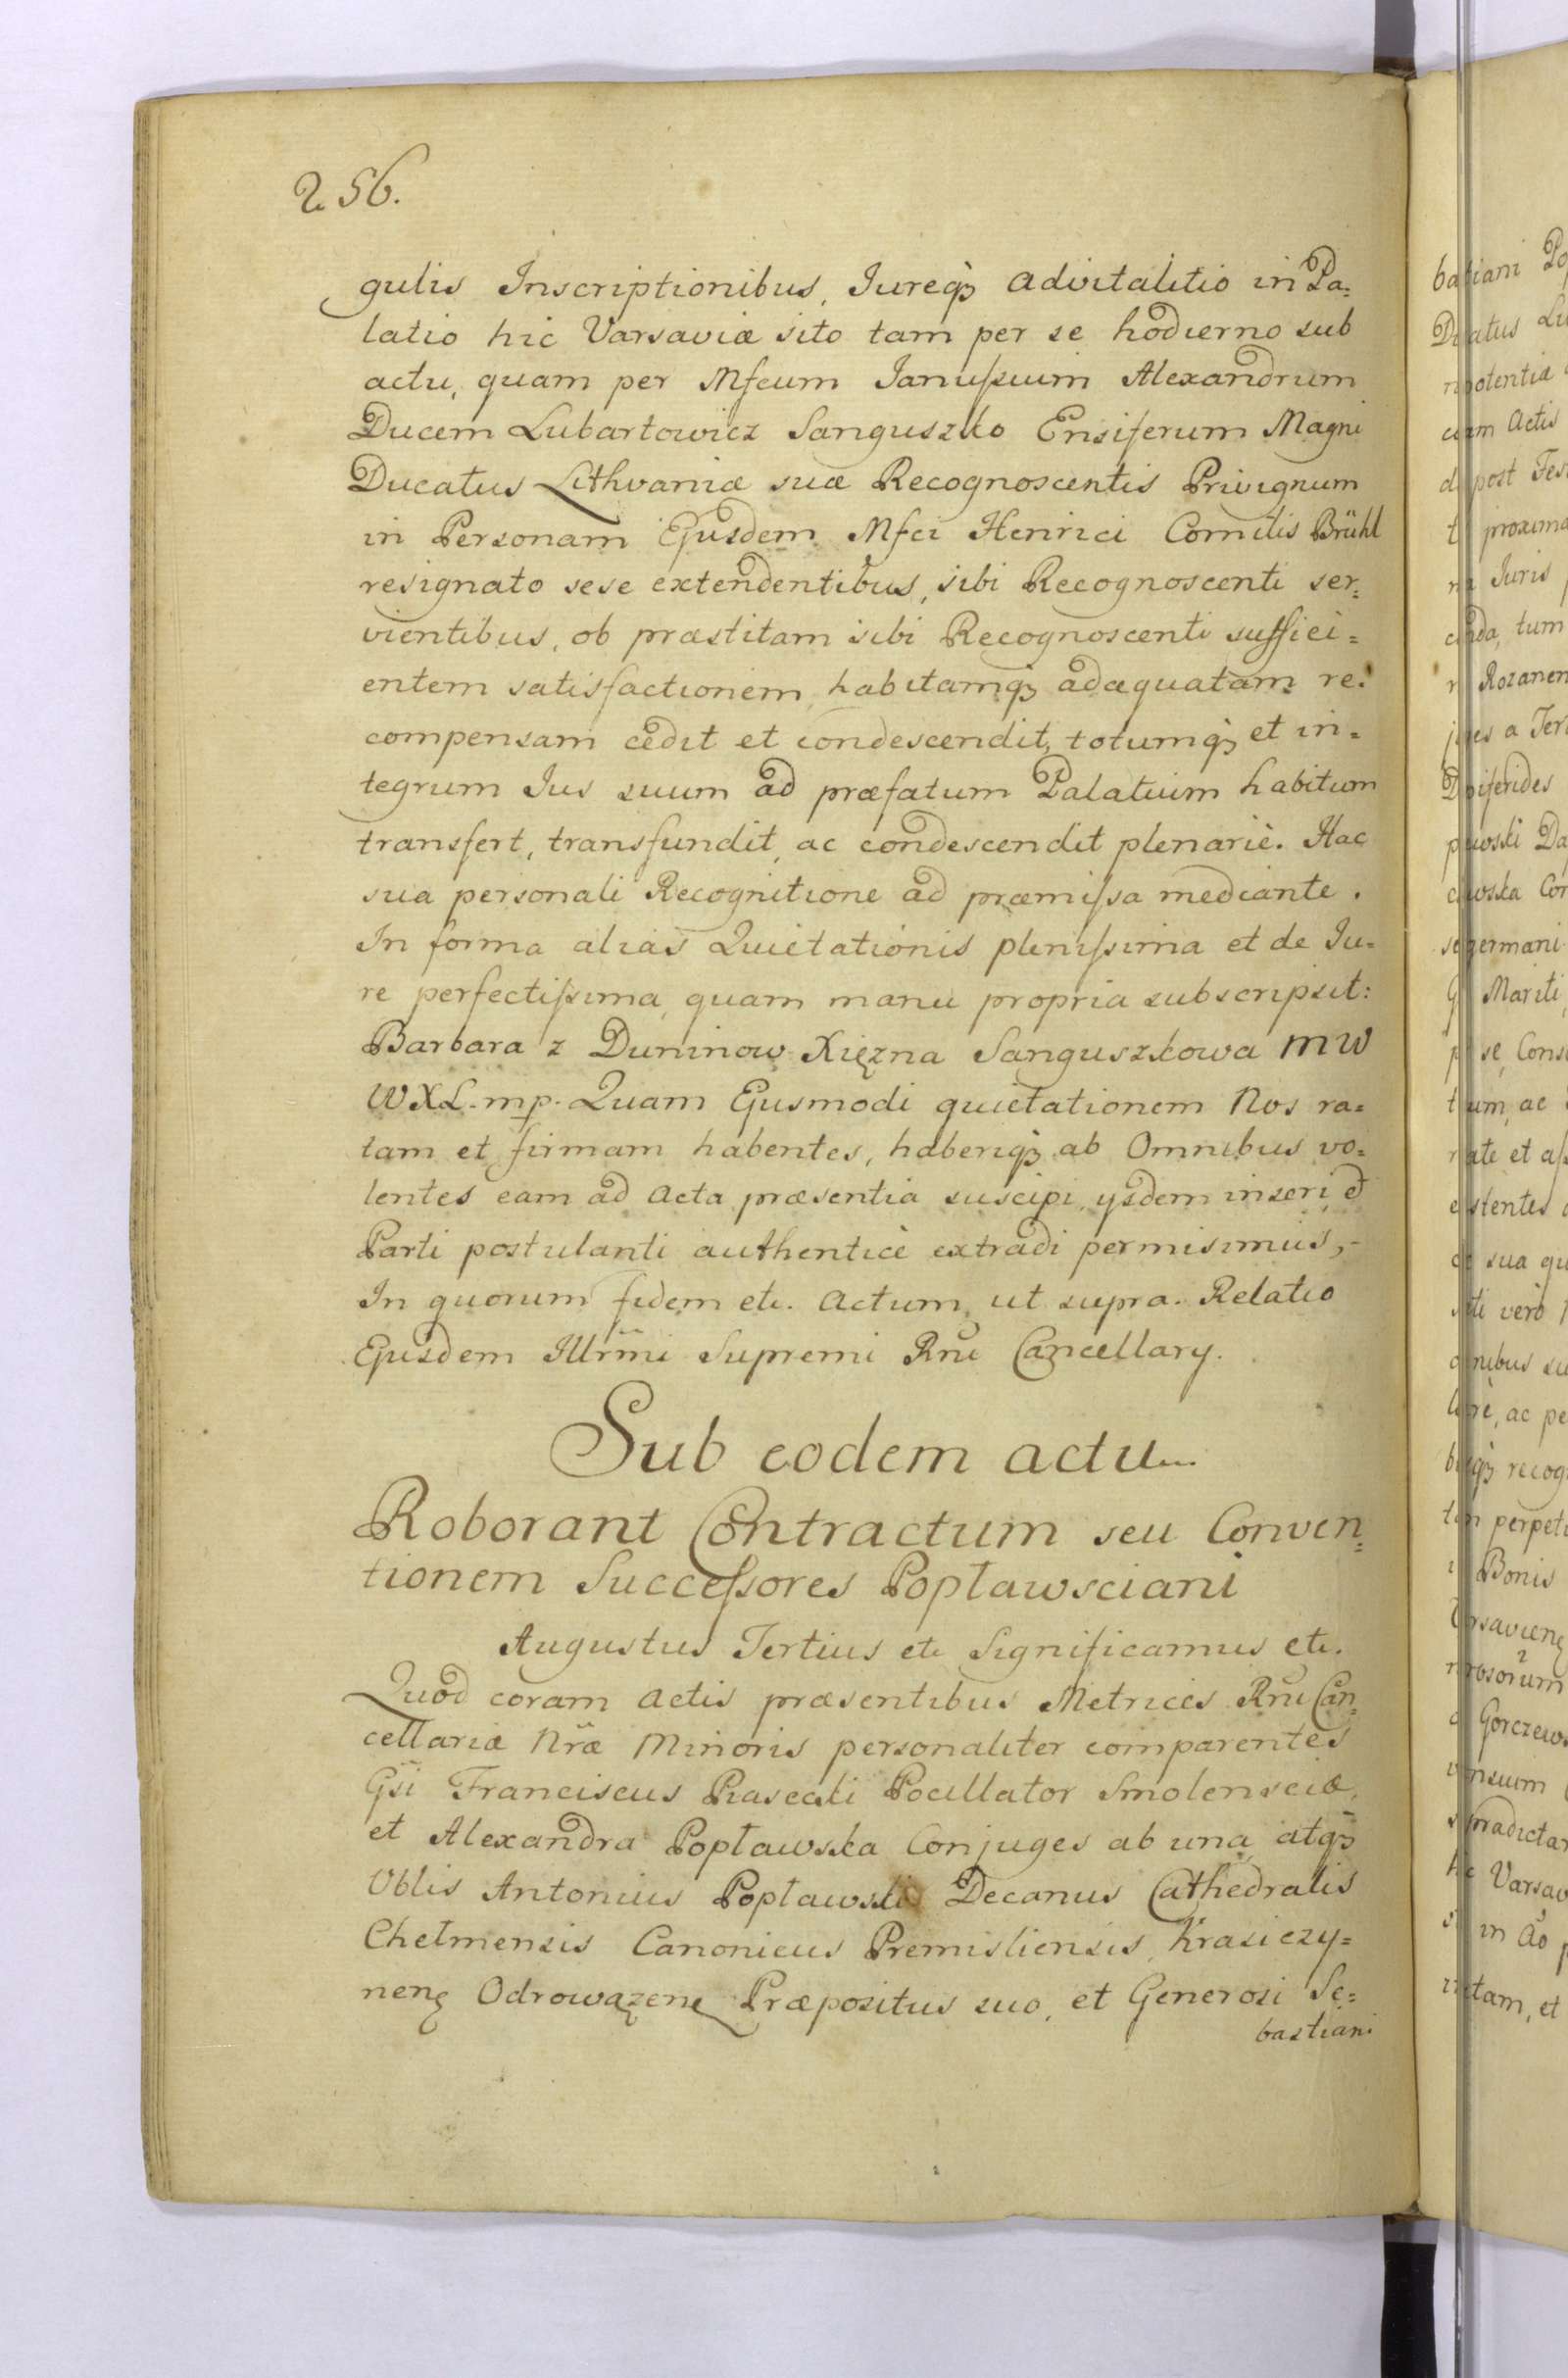 256.
gulis Inscriptionibus, Iureqꝫ advitalitio in Pa=
latio hic Varsaviæ sito tam per se hodierno sub
actu, quam per Mfcum Januſsium Alexandrum
Ducem Lubartowicz Sanguszko Ensiferum Magni
Ducatus Lithvaniæ suæ Recognoscentis Privignum
in Personam Ejusdem Mfci Henrici Comitis Brühl
resignato sese extendentibus, sibi Recognoscenti ser=
vientibus, ob præstitam sibi Recognoscenti suffici=
entem satisfactionem, habitamqꝫ adæquatam re=
compensam cedit et condescendit, totumqꝫ et in=
tegrum Jus suum ad præfatum Palatium habitum
transfert, transfundit, ac condescendit plenariè. Hac
sua personali Recognitione ad præmiſsa mediante.
In forma alias Quietationis pleniſsima et de Ju=
re perfectiſsima, quam manu propria subscripsit:
Barbara z Duninow Xięzna Sanguszkowa MW
WXL. mp. Quam Ejusmodi quietationem Nos ra=
tam et firmam habentes, haberiqꝫ ab Omnibus vo=
lentes eam ad Acta præsentia suscipi, ysdem inseri, et
Parti postulanti authenticè extradi permisimus,-
In quorum fidem etc. Actum, ut supra. Relatio
Ejusdem Illrmi Supremi Rni Cancellary.
Sub eodem actu
Roborant Contractum seu Conven=
tionem Succeſsores Popławsciani
Augustus Tertius etc Significamus etc.
Quod coram Actis præsentibus Metrices Rni Can=
cellariæ Nræ Minoris personaliter comparentes
Gsi Franciscus Piascali Pocillator Smolensciæ,
et Alexandra Popławska Conjuges ab una, atqꝫ
Vblis Antonius Popławski Decanus Cathedralis
Chełmensis Canonicus Premisliensis, Krasiczy=
nenę Odrowązenę Præpositus suo, et Generosi Se=
bastiani